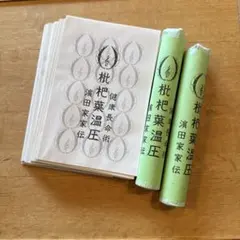 健康長命術
枇杷葉温圧
濱田家家伝
枇杷葉温圧
濱田家家伝
枇杷葉温圧
濱田家家伝